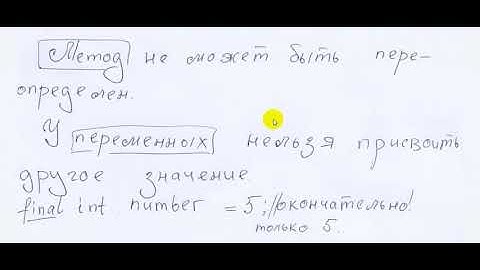 Метод не может быть пере-
определен.
У переменных нельзя присвоить
другое значение.
final int number = 5; //окончательно!
только 5.